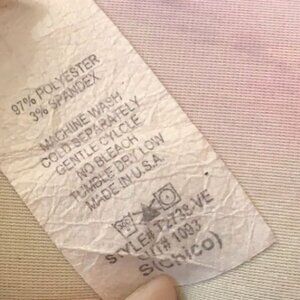 97% POLYESTER
3% SPANDEX
MACHINE WASH
COLD SEPARATELY
GENTLE CYLCLE
NO BLEACH
TUMBLE DRY LOW
MADE IN U.S.A.
STYLE# T2738-VE
1091
S(Chico)